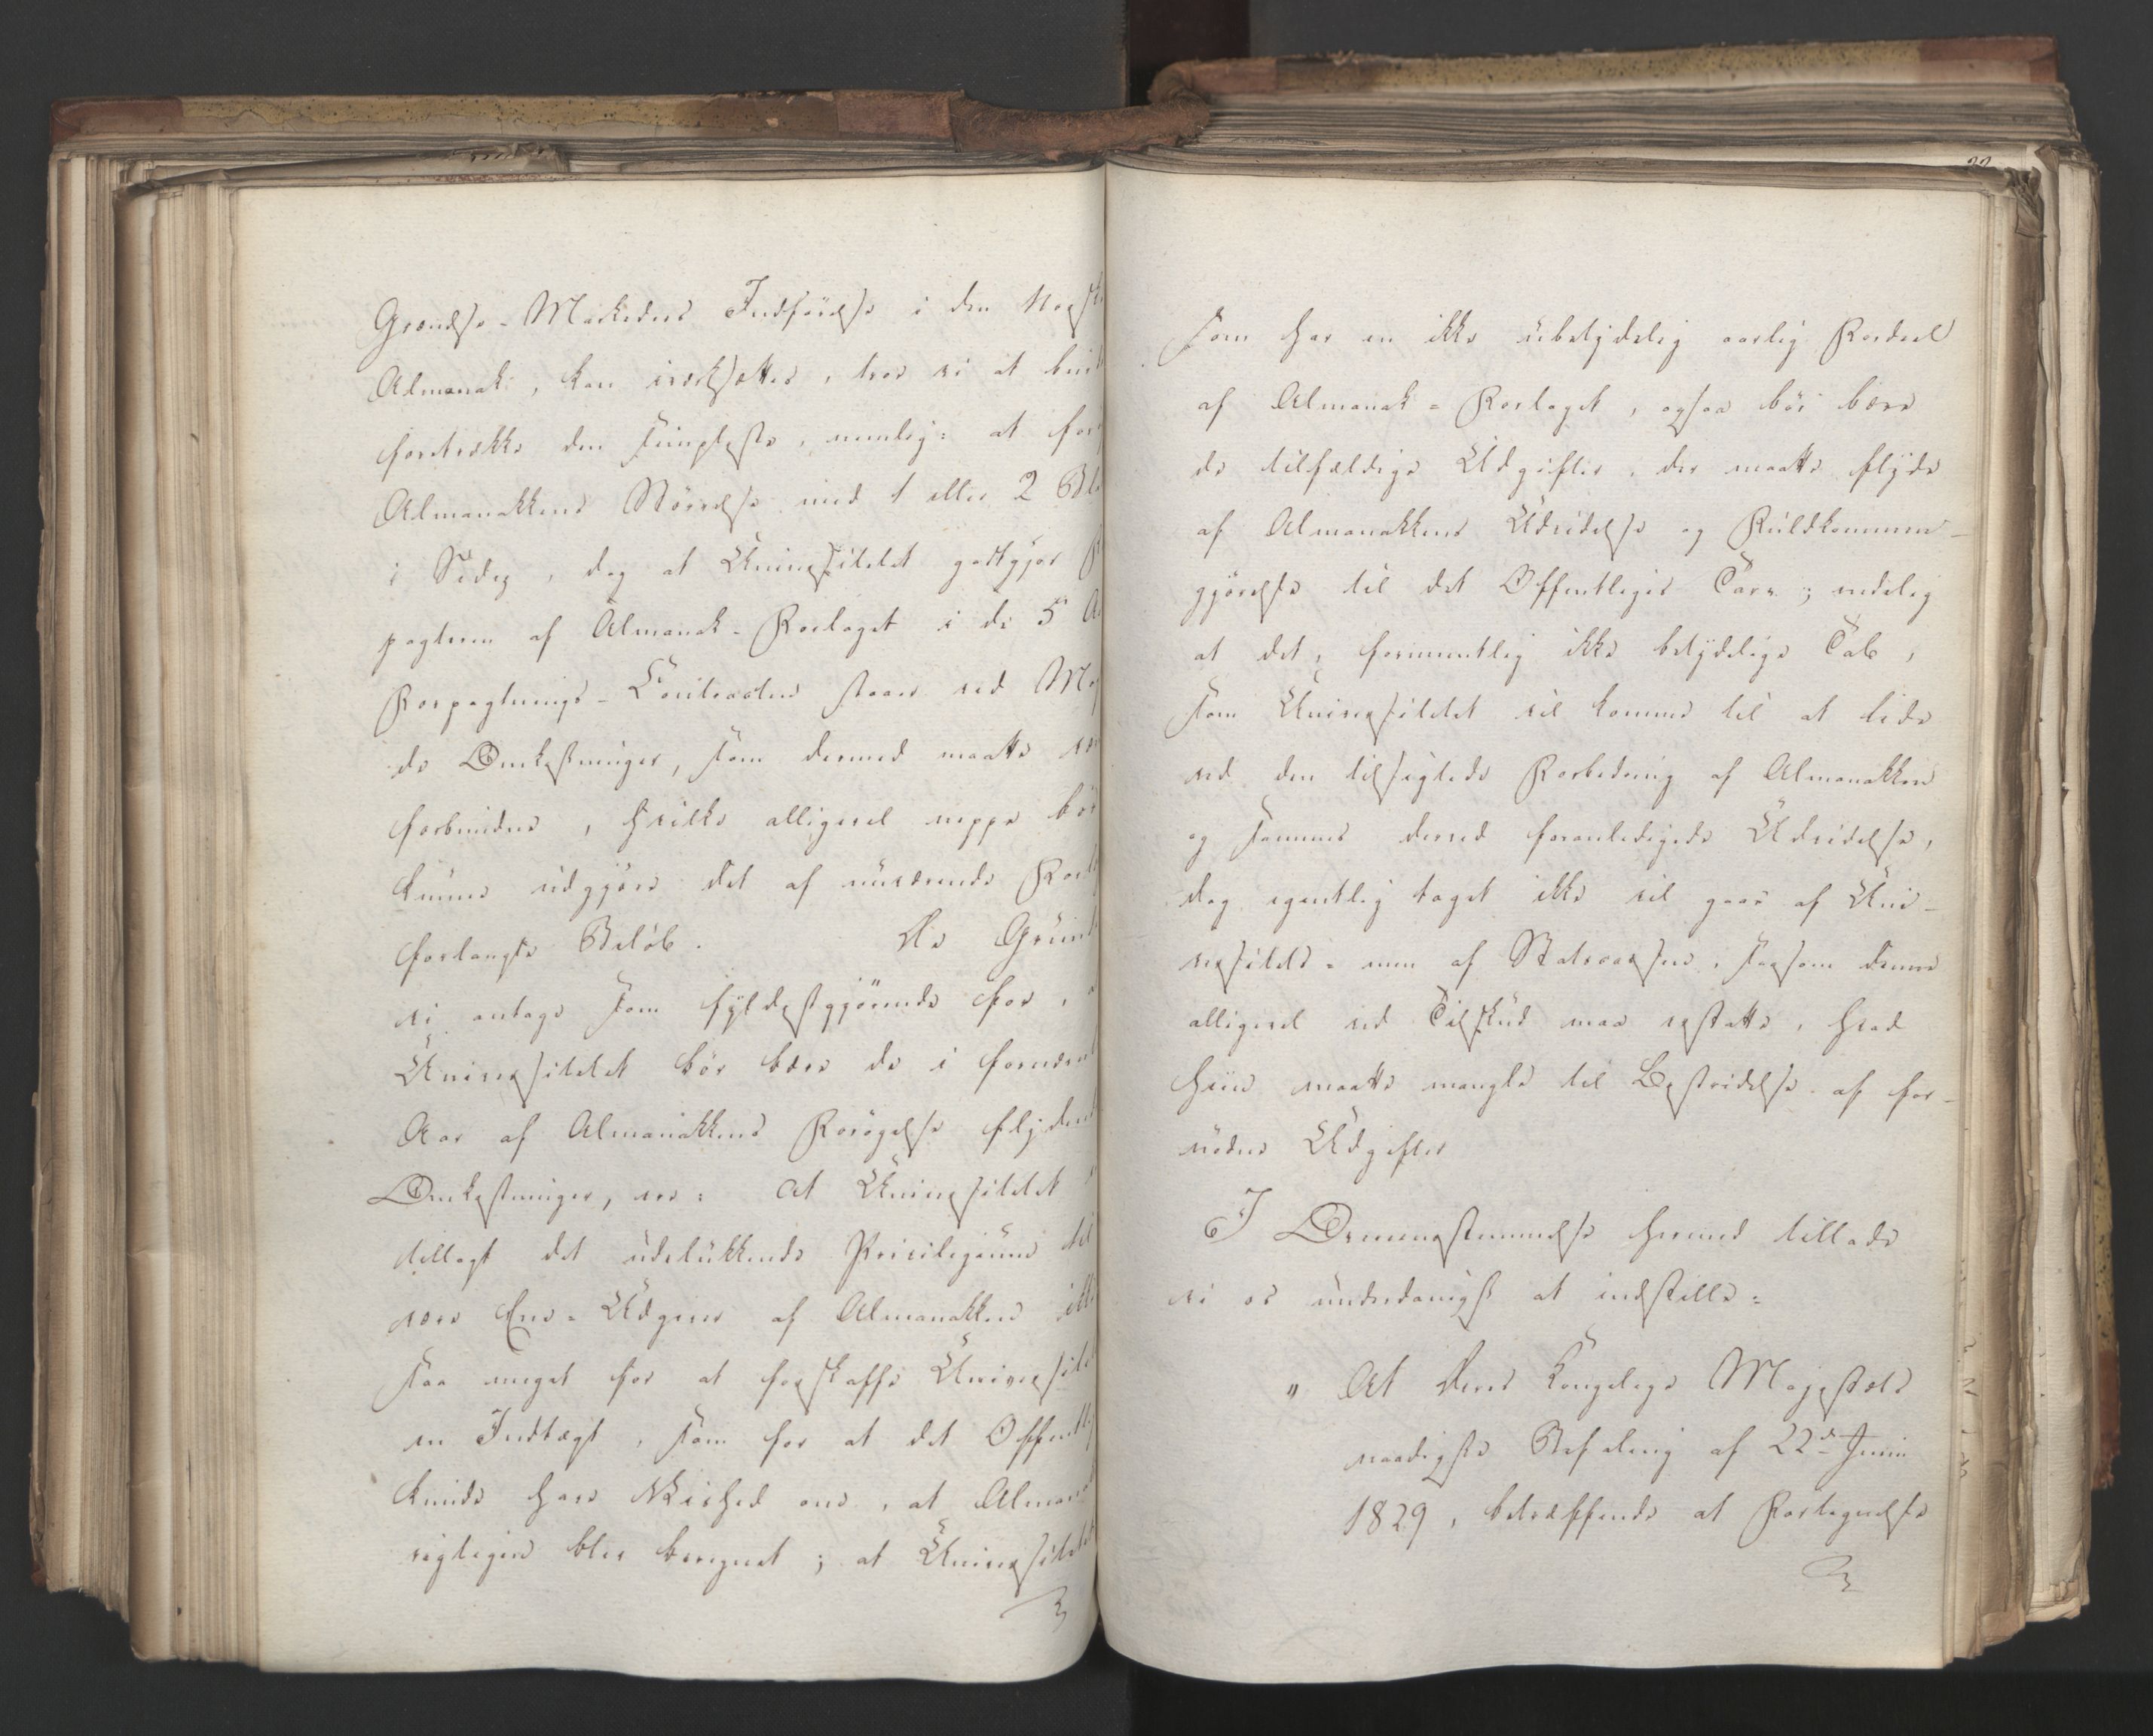 Grændse-Markedes Indförelse i den Norsk
Almanak, kan iværksættes, troe vi at bu
foretrække den simpleste, nemlig: at for
Almanakkens Störrelse med 1 eller 2 Bl
i Sedez, dog at Universitetet godtgjør
pagteren af Almanak-Forlaget i de 5 A
Forpagtnings-Contracten staaer ved M
de Omkostninger, som dermed maatte væ
forbindes, hvilke alligevel neppe bör
kunne udgjöre det af nuværende Forl
forlangte Belöb. De Grund
vi antage som fyldestgjörende for, a
Universitetet bör bære de i fornævnt
Aar af Almanakkens Forögelse flydend
Omkostninger, ere: at Universitetet
tillagt det udelukkende Privilegium til
være Ene-Udgiver af Almanakken ikke
saa meget for at forskaffe Universitet
en Indtægt, som for at det Offentl
kunde have Vished om, at Alman
rigtigen blev beregnet; at Universitetet
22
som har en ikke ubetydelig aarlig Fordeel
af Almanak-Forlaget, ogsaa bör bære
de tilfældige Udgifter, der maatte flyde
af Almanakkens Udvidelse og Fuldkommen-
gjörelse til det Offentliges Tarv; endelig
at det, formeentlig ikke betydelige Tab,
som Universitetet vil komme til at lide
ved den tilsigtede Forbedring af Almanakken
og sammes derved foranledigede Udvidelse,
dog egentlig taget ikke vil gaae af Uni-
versitets- men af Statscassen, saasom denne
alligevel ved Tilskud maa erstatte, hvad
hiin maatte mangle til Bestridelse af for-
nödne Udgifter
I Overeensstemmelse hermed tillade
vi os underdanigst at indstille:
" At Deres Kongelige Majestæts
naadigste Befaling af 22d Junii
1829, betræffende at Fortegnelse